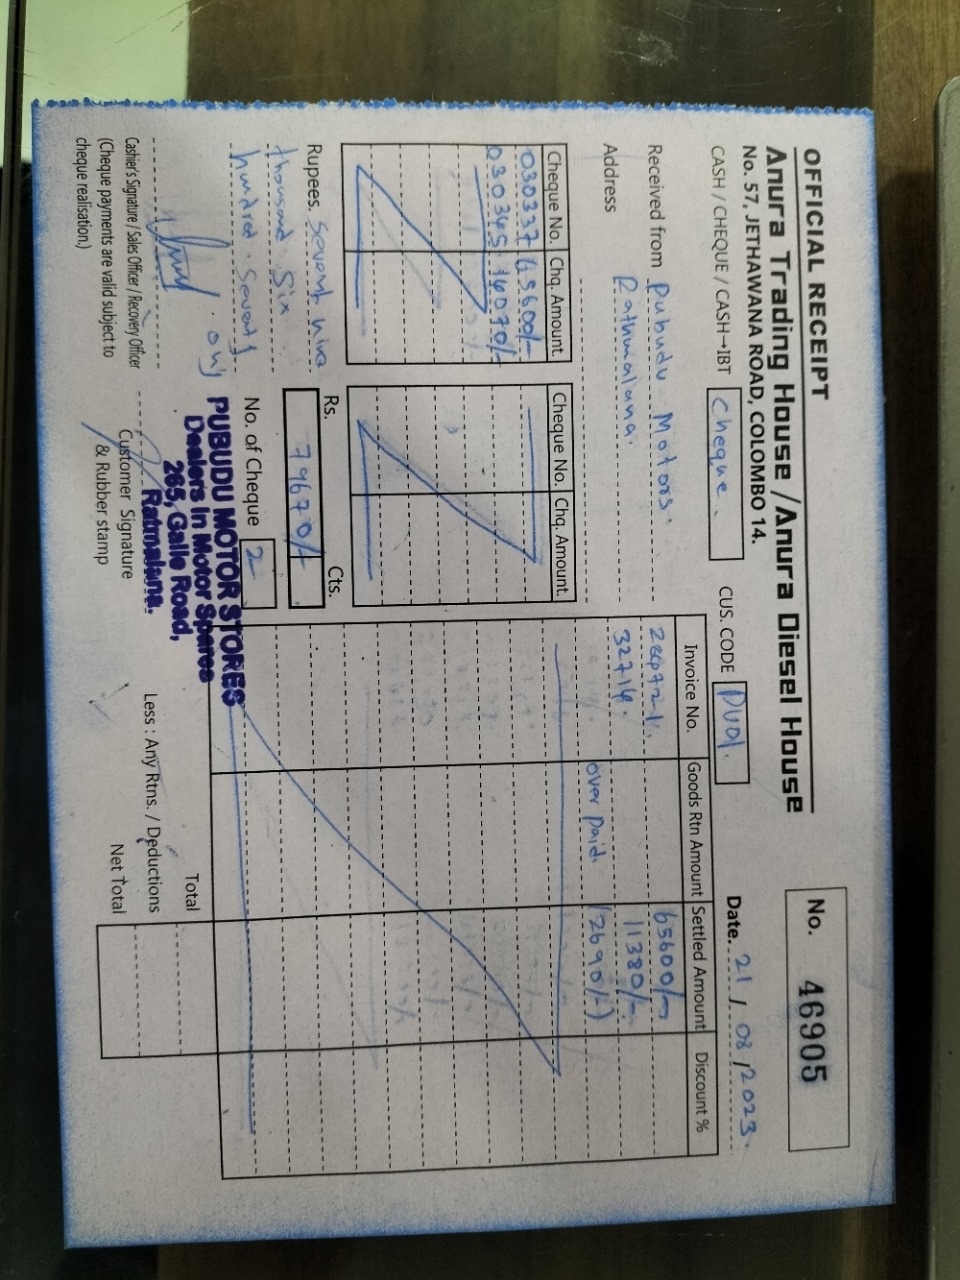 OFFICIAL RECEIPT
No. 46905
Anura Trading House / Anura Diesel House
No. 57, JETHAWANA ROAD, COLOMBO 14.
Date. 21 / 08 / 2023.
CASH / CHEQUE / CASH→IBT Cheque.
CUS. CODE
Received from Pubudu Motors.
Address Rathmalana.
Cheque No. Chq. Amount.
030337 65600/-
030345 14070/-
Cheque No. Chq. Amount.
Invoice No. Goods Rtn Amount Settled Amount Discount %
65600/-
32714. 11380/-
over paid. (2690/-)
Rupees. Seventy nine
thousand Six
hundred Seventy
only
Rs. Cts.
79670/-
No. of Cheque 2
PUBUDU MOTOR STORES
Dealers In Motor Spares
265, Galle Road,
Ratmalana.
Total
Less : Any Rtns. / Deductions
Net Total
Cashier's Signature / Sales Officer / Recovery Officer
(Cheque payments are valid subject to
cheque realisation.)
Customer Signature
& Rubber stamp